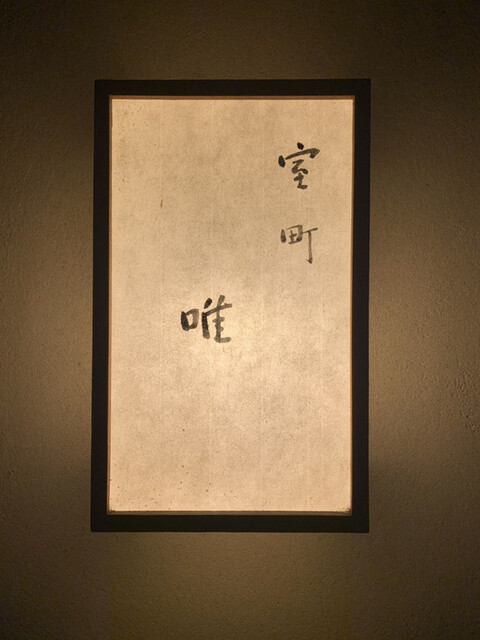 室町
唯